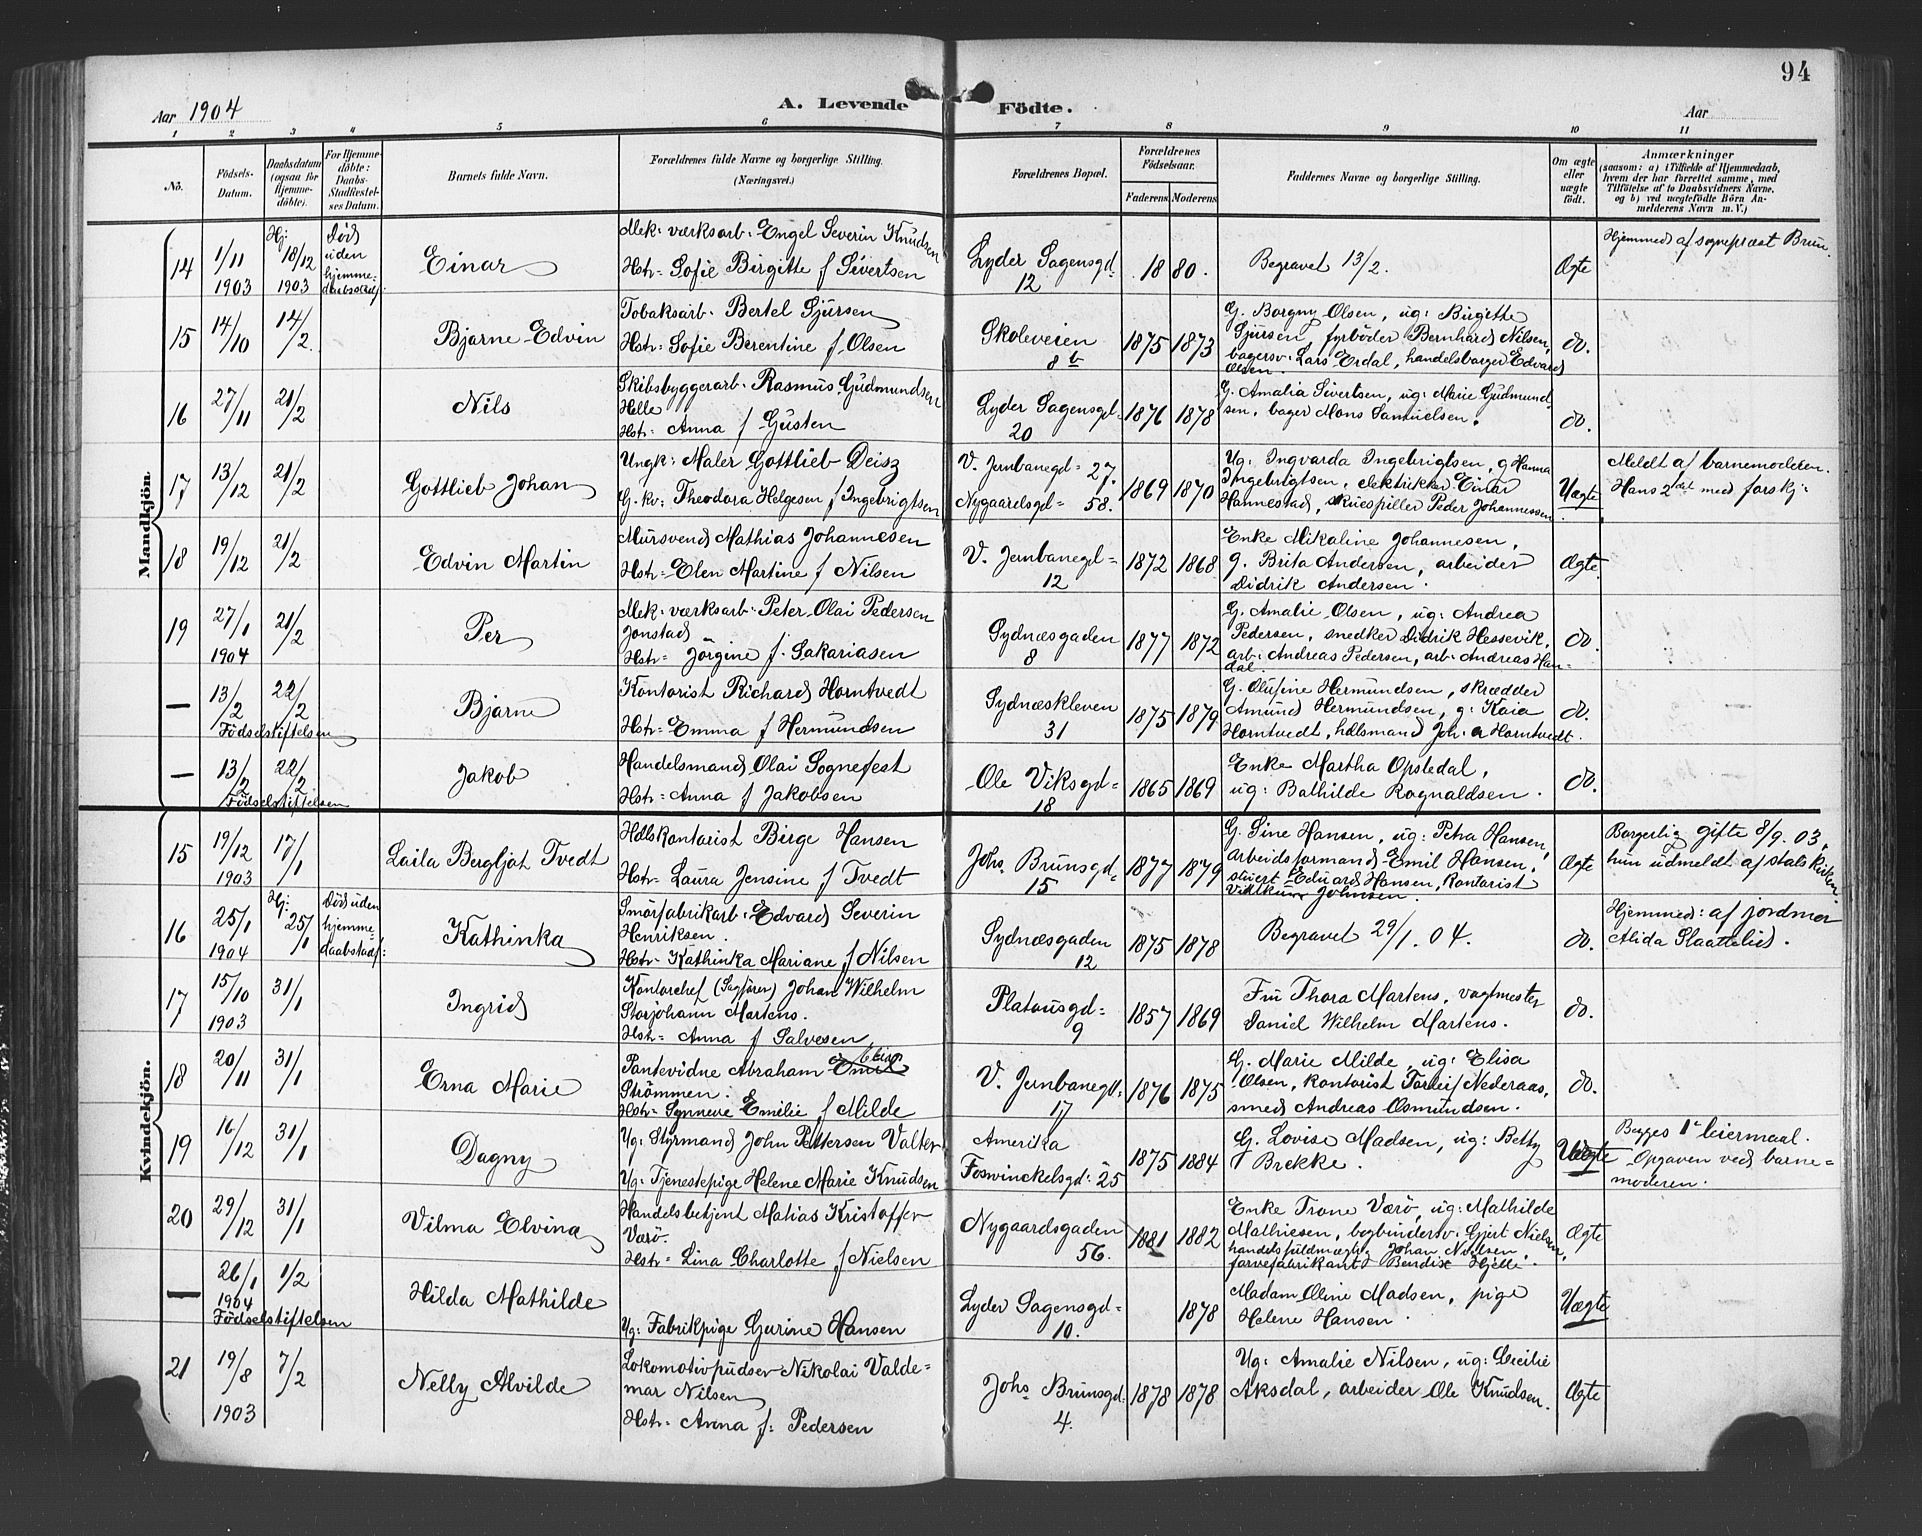 94
Aar 1904
A. Levende
Födte.
Aar
1 2 3 4 5 6 7 8 9 10 11
No.
Födsels-
Datum.
Daabsdatum
(ogsaa for
Hjemme-
döbte).
For Hjemme-
döbte:
Daabs-
Stadfæstel-
ses Datum.
Barnets fulde Navn.
Forældrenes fulde Navne og borgerlige Stilling.
(Næringsvei.)
Forældrenes Bopæl.
Forældrenes
Födselsaar.
Faderens Moderens
Faddernes Navne og borgerlige Stilling.
Om ægte
eller
uægte
födt.
Anmærkninger
(saasom: a) i Tilfælde af Hjemmedaab,
hvem der har forrettet samme, med
Tilföielse af to Daabsvidners Navne,
og b) ved uægtefödte Börn An-
melderens Navn m. V.)
Mandkjön.
14
1/11
1903
Hj:
18/12
1903
Död
uden
hjemme-
daabsstadf.
Einar
Mek. værksarb. Engel Severin Knudsen
Hstr. Sofie Birgitte f Sivertsen
Lyder Sagensgd.
12
1880.
Begravet 13/2.
Ægte
Hjemmed. af sognepræst Brun.
15
14/10
14/2.
Bjarne Edvin
Tobaksarb. Bertel Sjursen
Hstr. Sofie Berentine f Olsen
Skoleveien
8 b
1875 1873
G. Borgny Olsen, ug: Birgitte
Sjursen, fyrböder Bernhard Nilsen,
bagersv. Lars Erdal, handelsborger Edvard
Olsen.
do.
16
27/11
21/2
Nils
Skibsbyggerarb. Rasmus Gudmundsen
Helle
Hstr. Anna f Gusten
Lyder Sagensgd.
20
1876 1878
G. Amalia Sivertsen, ug: Marie Gudmund-
sen, bager Mons Samuelsen.
do.
17
13/12
21/2
Gottlieb Johan
Ungk: Maler Gottlieb Deisz
G. kv: Theodora Helgesen f Ingebrigtsen
V. Jernbanegd. 27.
Nygaardsgd. 58.
1869 1870
Ug: Ingvarda Ingebrigtsen, g Hanna
Ingebrigtsen, elektrikker Einar
Hannestad, skuespiller Peder Johannessen
Uægte
Meldt af barnemoderen.
Hans 2det med forskj:
18
19/12
21/2
Edvin Martin
Mursvend Mathias Johannesen
Hstr. Elen Martine f Nilsen
V. Jernbanegd.
12
1872 1868
Enke Mikaline Johannesen,
g. Brita Andersen, arbeider
Didrik Andersen.
Ægte.
19
27/1
1904
21/2
Per
Mek. værksarb. Peter Olai Pedersen
Jonstad
Hstr. Jörgine f. Sakariasen
Sydnæsgaden
8
1877 1872
G. Amalie Olsen, ug: Andrea
Pedersen, snedker Didrik Hessevik,
arb. Andreas Pedersen, arb. Andreas Han-
dal.
do.
—
13/2
22/2
Födselstiftelsen
Bjarne
Kontorist Richard Horntvedt
Hstr. Emma f Hermundsen
Sydnæskleven
31
1875 1879
G. Olufine Hermundsen, skrædder
Amund Hermundsen, g: Kaia
Horntvedt, hdlsmand Joh. A Horntvedt.
do.
—
13/2
22/2
Födselstiftelsen
Jakob
Handelsmand Olai Sognefest
Hstr. Anna f Jakobsen
Ole Viksgd.
18
1865 1869
Enke Martha Opstedal,
ug: Bathilde Ragnaldsen.
do.
Kvindekjön.
15
19/12
1903
17/1
Laila Bergljot Tvedt
Hdlskontorist Birge Hansen
Hstr. Laura Jensine f Tvedt
Johs Brunsgd.
15
1877 1879
G. Sine Hansen, ug: Petra Hansen,
arbeidsformand Emil Hansen,
stuert Eduard Hansen, kontorist
Johnsen.
Ægte
Borgerlig gifte 8/9. 03,
hun udmeldt af statskirken.
16
25/1
1904
Hj:
25/1
Död uden
hjemme-
daabstadf:
Kathinka
Smörfabrikarb. Edvard Severin
Henriksen.
Hstr. Kathinka Mariane f Nilsen
Sydnæsgaden
12
1875 1878
Begravet 29/1. 04.
do.
Hjemmed: af jordmor
Alida Slaattelid.
17
15/10
1903
31/1
Ingrid
Kontorchef (Sagförer) Johan Wilhelm
Storjohann Martens.
Hstr. Anna f Salvesen
Platousgd.
9
1857 1869
Fru Thora Martens, vagtmester
Daniel Wilhelm Martens.
do.
18
20/11
31/1
Erna Marie
Pantevidne Abraham Emil
Strömmen.
Hstr. Synneve Emilie f Milde
V. Jernbanegd.
17
1876 1875
G. Marie Milde, ug: Elisa
Olsen, kontorist Torleif Nederaas,
smed Andreas Osmundsen.
do.
19
16/12
31/1
Dagny
Ug: Styrmand John Pettersen Valter
Ug: Tjenestepige Helene Marie Knudsen
Amerika
Foswinckelsgd: 25
1875 1884
G. Lovise Madsen, ug: Betty
Brekke.
Uægte
Begges 1ste leiermaal.
Opgaven ved barne-
moderen.
20
29/12
31/1
Vilma Elvina
Handelsbetjent Matias Kristoffer
Værö.
Hstr. Lina Charlotte f Nielsen
Nygaardsgaden
56.
1881 1882
Enke Trone Værö, ug: Mathilde
Mathiesen, bogbindersv. Gjert Nielsen,
handelsfuldmægtig Johan Nielsen,
farvefabrikant Bendix Hjelle.
Ægte
—
26/1
1904
1/2
Födselstiftelsen
Hilda Mathilde
Ug: Fabrikpige Gurine Hansen
Lyder Sagensgd.
10.
1878
Madam Oline Madsen, pige
Helene Hansen.
Uægte
21
19/8
1903
7/2
Nelly Alvilde
Lokomotivpudser Nikolai Valde-
mar Nilsen
Hstr. Anna f: Pedersen
Johs Brunsgd.
4.
1878 1878
Ug: Amalie Nilsen, ug: Cecilie
Aksdal, arbeider Ole Knudsen.
Ægte